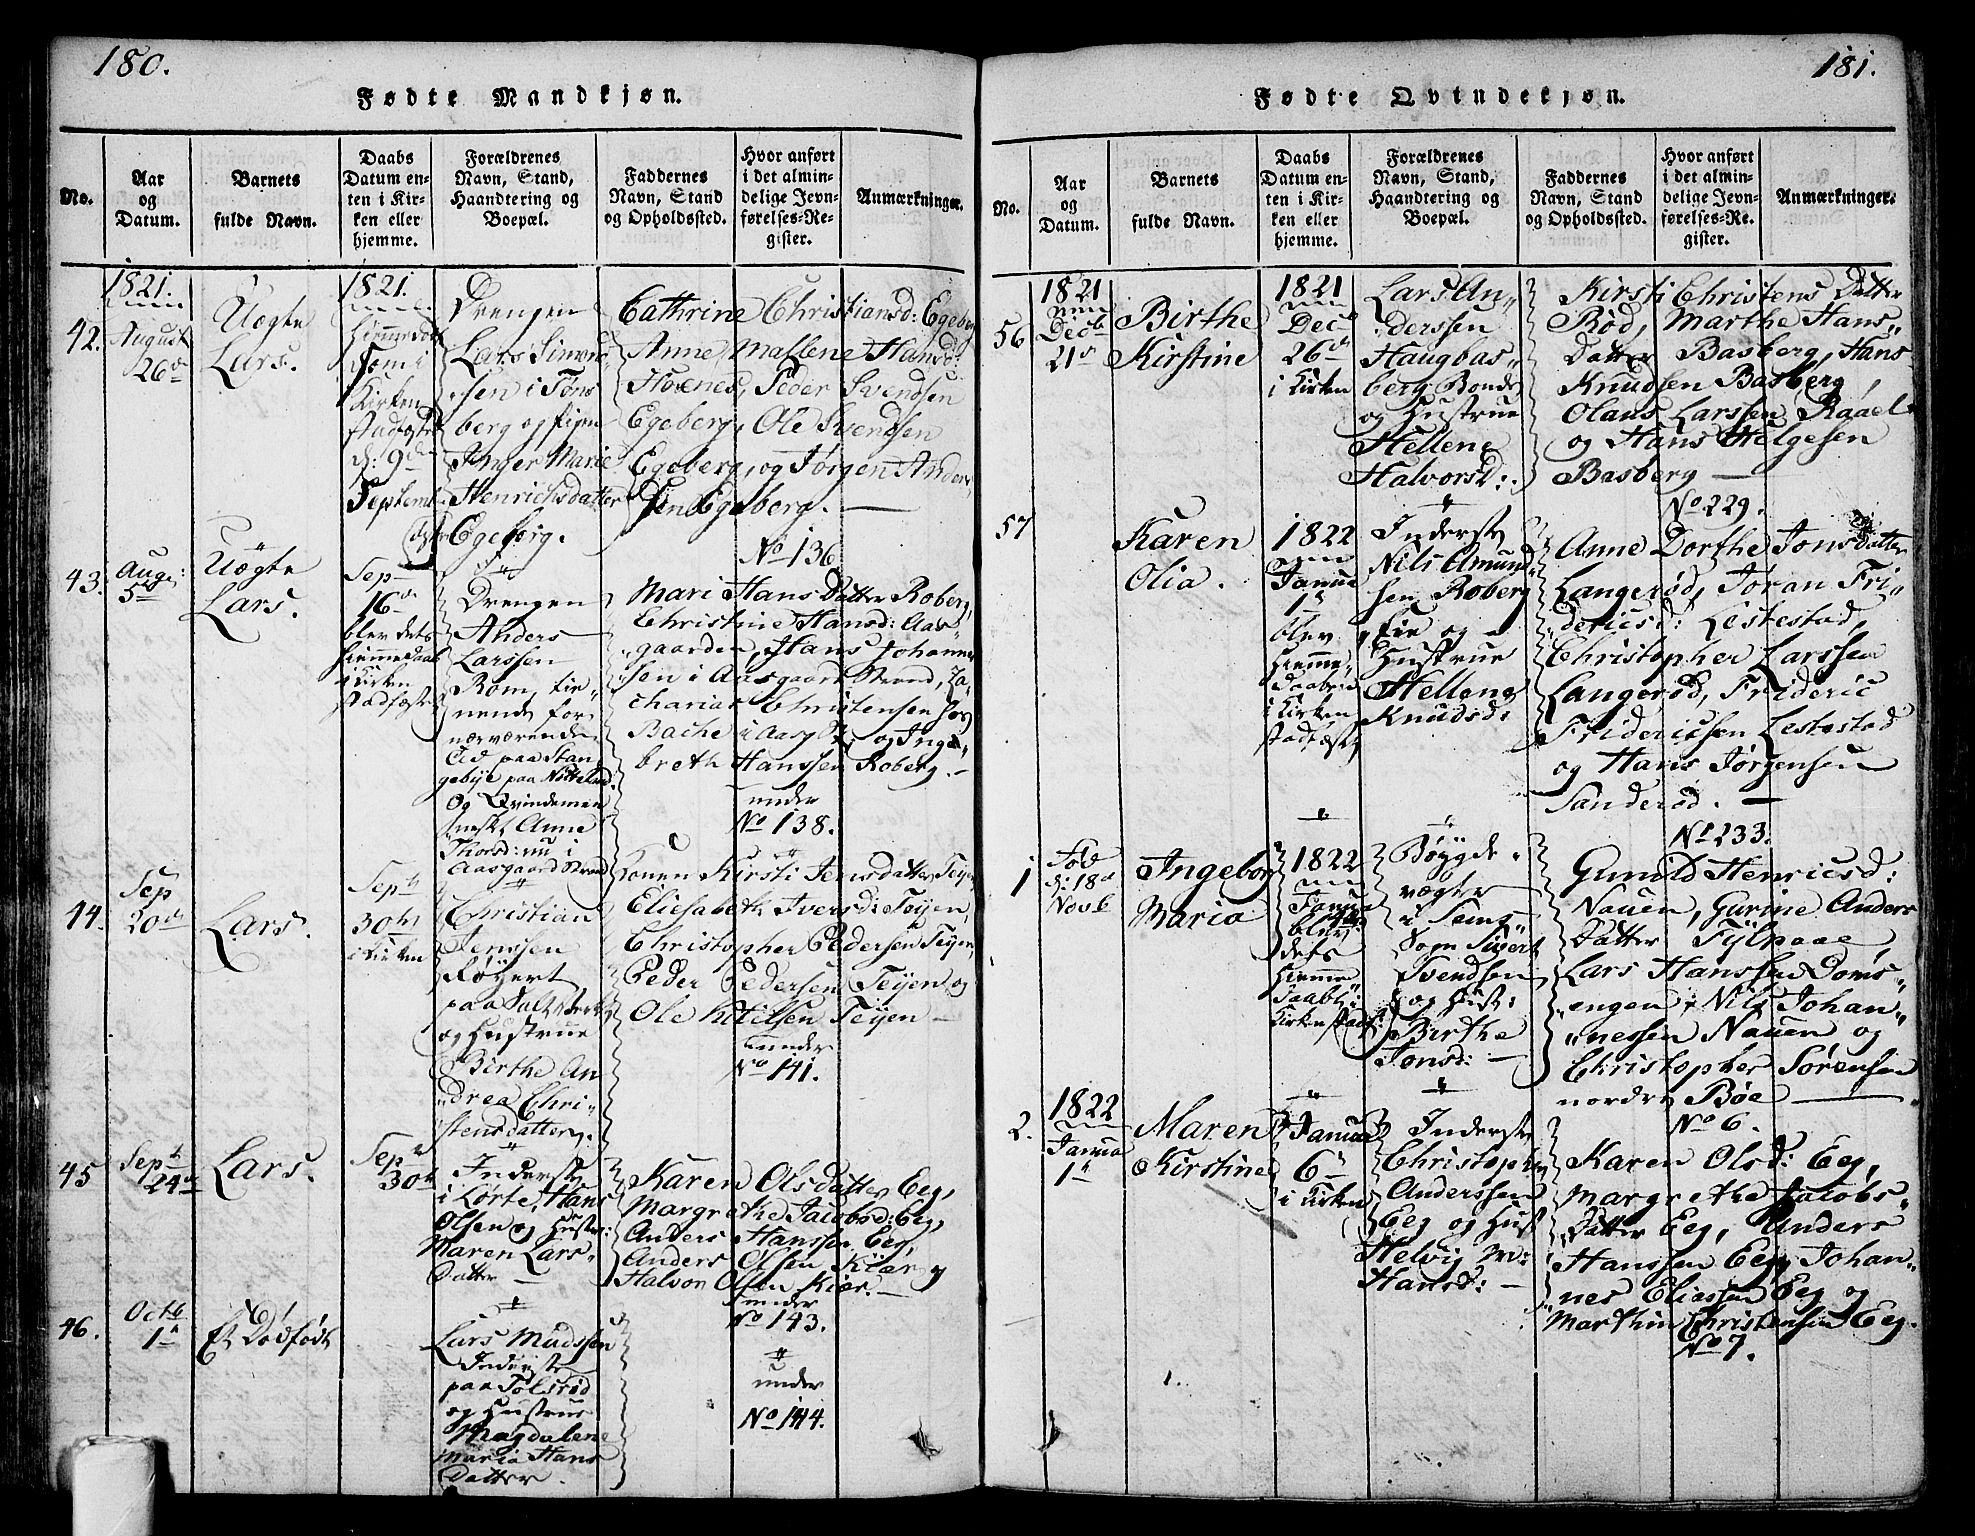 180.
Fødte Mandkjøn.
No.
Aar og Datum.
Barnets fulde Navn.
Daabs Datum enten i Kirken eller hjemme.
Forældrenes Navn, Stand, Haandtering og Boepæl.
Faddernes Navn, Stand og Opholdssted.
Hvor anført i det almindelige Jevnførelses-Register.
Anmærkninger.
42.
1821.
August
26de
Uægte
Lars.
1821.
i
Kirken
stadfæstet
d: 9de
Septemb
Drengen
Lars Simens
sen i Töns
berg og pigen
Inger Marie
Henrichsdatter
Egeberg.
Cathrine Christiansd: Egeberg
Anne Mallene Hansd:
Hoxnes, Peder Svendsen
Egeberg, Ole Svendsen
Egeberg, og Jörgen Anders
sen Egeberg. —
No 136
43.
Aug:
5te
Uægte
Lars.
Sep
16de
blev dets
hiemmedaab
i Kirken
stadfæstet
Drengen
Anders
Larssen
Rom, tie-
nende for
nærværende
Tid paa Stan
gebye paa Nötteland
og Qvindemen
nesket Anne
Thorsd: nu i
Aasgaardstrand
Mari Hans Datter Roberg,
Christine Hansd: Aas-
gaarden, Hans Johannes
sen i Aasgaardstrand, Za-
charias Christensen
Bache i Aasg og Inge
breth Hanssen Roberg. —
under
No 138.
44.
Sep
20de
Lars.
Septb
30te
i Kirken
Christian
Jenssen
Röyert
paa Saltværket
og Hustrue
Birthe An
drea Chri-
stensdatter.
Konen Kirsti Jensdatter Teyen
Eliesabeth Iversd: Teyen,
Christopher Pedersen Teyen,
Peder Pedersen Teyen og
Ole Ketilsen Teyen —
under
No 141.
45
Septb
24de
Lars.
Sep
30te
Inderste
i Lörte, Hans
Olsen og Hustr:
Maren Lars-
datter —
Karen Olsdatter Eeg,
Margrethe Jacobsd: Eeg,
Anders Hanssen Eeg,
Anders Olsen Kiær og
Halvor Olsen Kiær. —
under
No 143.
46.
Octb
1te
Et Dödfödt
Lars Madssen
Inderste
paa Tolsröd
og Hustrue
Magdalene
Maria Hans
Datter.
under
No 144.
181.
Fødte Qvindekjøn.
No.
Aar og Datum.
Barnets fulde Navn.
Daabs Datum enten i Kirken eller hjemme.
Forældrenes Navn, Stand, Haandtering og Boepæl.
Faddernes Navn, Stand og Opholdssted.
Hvor anført i det almindelige Jevnførelses-Register.
Anmærkninger.
56
1821
Decb
21de
Birthe
Kirstine
1821
Dec
26de
i Kirken
Lars An-
derssen
Haugbas-
berg Bonde
og Hustrue
Hellene
Halvorsd:
Kirsti Christens Datter
Röd, Marthe Hans
Datter Basberg, Hans
Knudsen Basberg,
Olaus Larssen Raael
og Hans Helgesen
Basberg —
No 229.
57
Karen
Olia.
1822
Janua
1te
blev
hiemme-
daaben
i Kirken
stadfæstet
Inderste
Nils Amund
sen Roberg
eie og
Hustrue
Hellene
Knudsd:
Anne Dorthe Jonsdatter
Langeröd, Jöran Fri-
dericsd: Lestestad,
Christopher Larssen
Langeröd, Frideric
Fridericsen Lestestad
og Hans Jörgensen
Sanderöd. —
No 233.
1
Föd
d: 18de
Novb
Ingeborg
Maria
1822
Janua
blev
dets
hiemme
daab i
Kirken stadf:
Böygde
vægter
i Sems
Sogn Sivert
Svendsen
og Hust:
Birthe
Jonsd: —
Gunild Henricsd:
Nauen, Gurine Anders
Datter Fylpaae
Lars Hanssen Doms-
engen, Nils Johan-
nessen Nauen og
Christopher Sörensen
nordre Böe —
No 6.
2.
1822
Janua
1te
Maren
Kirstine
Januar
6te
i Kirken
Inderste
Christopher
Anderssen
Eeg og Hust
Helvig M:
Hansd: —
Karen Olsd: Eeg,
Margrethe Jacobs-
Datter Eeg, Anders
Hanssen Eeg, Johan-
nes Eliassen Eeg og
Marthin Christensen Eeg.
No 7.